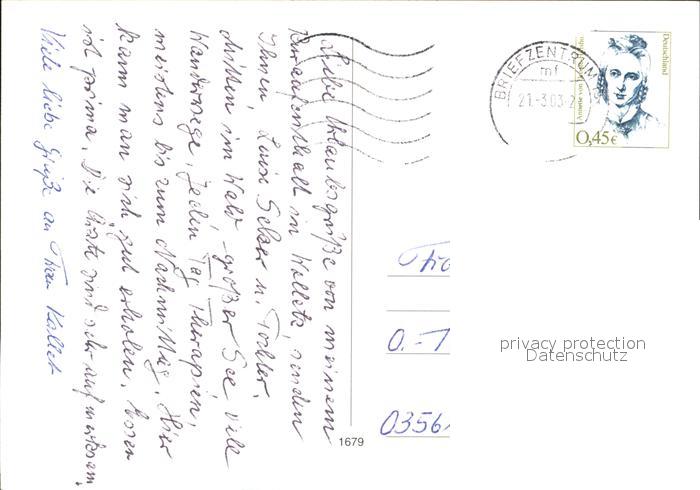 Liebe Urlaubsgrüße von meinem
Kuraufenthalt in Wolletz, senden
Ihnen Luise Selzer u. Tochter.
Mitten im Wald - großer See viele
Wanderwege. Jeden Tag Therapien,
meistens bis zum Nachmittag. Hier
kann man sich gut erholen. Essen
ist prima. Die Ärzte sind sehr aufmerksam.
Viele liebe Grüße an Frau
BRIEFZENTRUM
mf
21.-3.03-2
Deutschland
0,45€
Fra
O.-T
0356
1679
privacy protection
Datenschutz